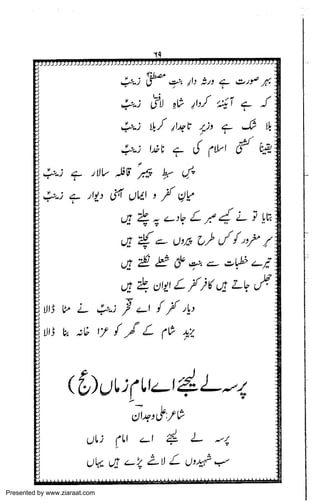 ۶۹
بہر صورت ہے ورثہ دار بنتِ مصطفیٰؐ زینبؑ
کہ ہے آئینۂ کردارِ شاہِ لافتیٰ زینبؑ
بلا شک ہے وزیرِ تاجدارِ کربلا زینبؑ
یقیناً کشتیِ اسلام کی ہے ناخدا زینبؑ
پسِ سبطِ پیمبرؐ قافلہ سالار ہے زینبؑ
میانِ کفر و ایماں آہنی دیوار ہے زینبؑ
بتایا تو نے کیسے صبر کے جادے پہ چلتے ہیں
سرِ مغرور کو کس طرح پیروں سے کچلتے ہیں
تیرے خطبات سے بنتِ علیؑ شعلے نکلتے ہیں
جھلس جاتے ہیں کافر کفر کے ایوان جلتے ہیں
دیارِ کفر کو اے فخرِ زینبؑ نے مٹا ڈالا
یزیدِ شام کے گھر کو عزا خانہ بنا ڈالا
پرسہ لے لیجئے اے امامِ زماں (عج)
شاعر: علی وجدان
پرسہ لے لیجئے اے امامِ زماں
سب شہیدوں کے لاشے پڑے ہیں یہاں
Presented by www.ziaraat.com